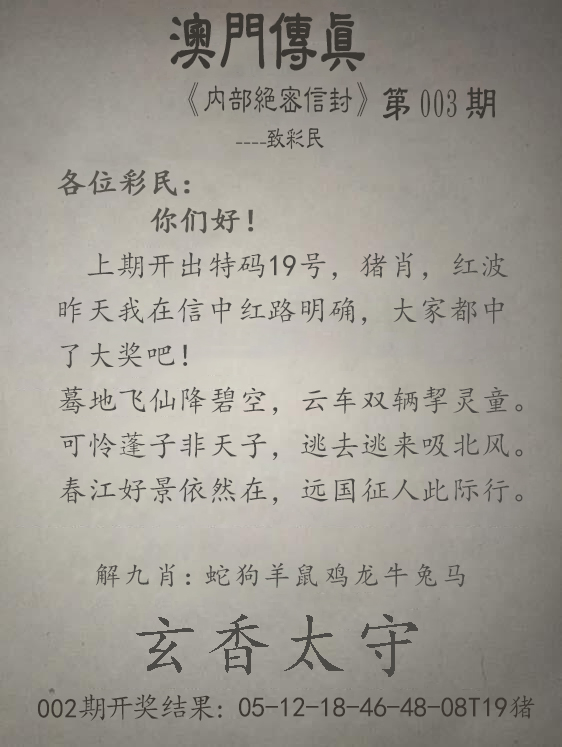 澳門傳眞
《内部絕密信封》第003期
----致彩民
各位彩民：
你们好！
上期开出特码19号，猪肖，红波
昨天我在信中红路明确，大家都中
了大奖吧！
蓦地飞仙降碧空，云车双辆挈灵童。
可怜蓬子非天子，逃去逃来吸北风。
春江好景依然在，远国征人此际行。
解九肖：蛇狗羊鼠鸡龙牛兔马
玄香太守
002期开奖结果：05-12-18-46-48-08T19猪